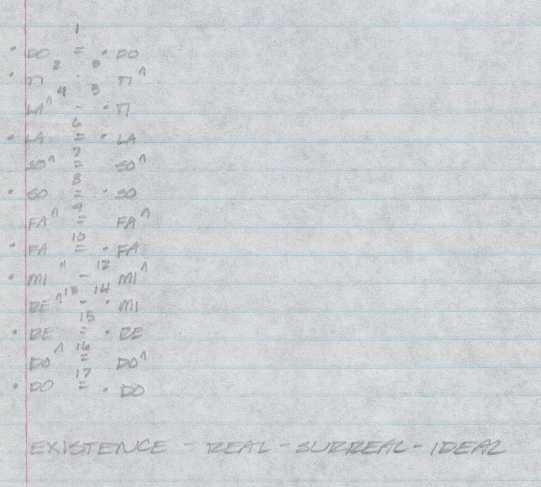 1
• DO = • DO
2 3
• TI - TI^
4 5
LA^ - • TI
6
• LA = • LA
7
SO^ = SO^
8
• SO = • SO
9
FA^ = FA^
10
• FA = • FA
11 12
• MI - MI^
13 14
RE^ - • MI
15
• RE = • RE
16
DO^ = DO^
17
• DO = • DO
EXISTENCE - REAL - SURREAL - IDEAL